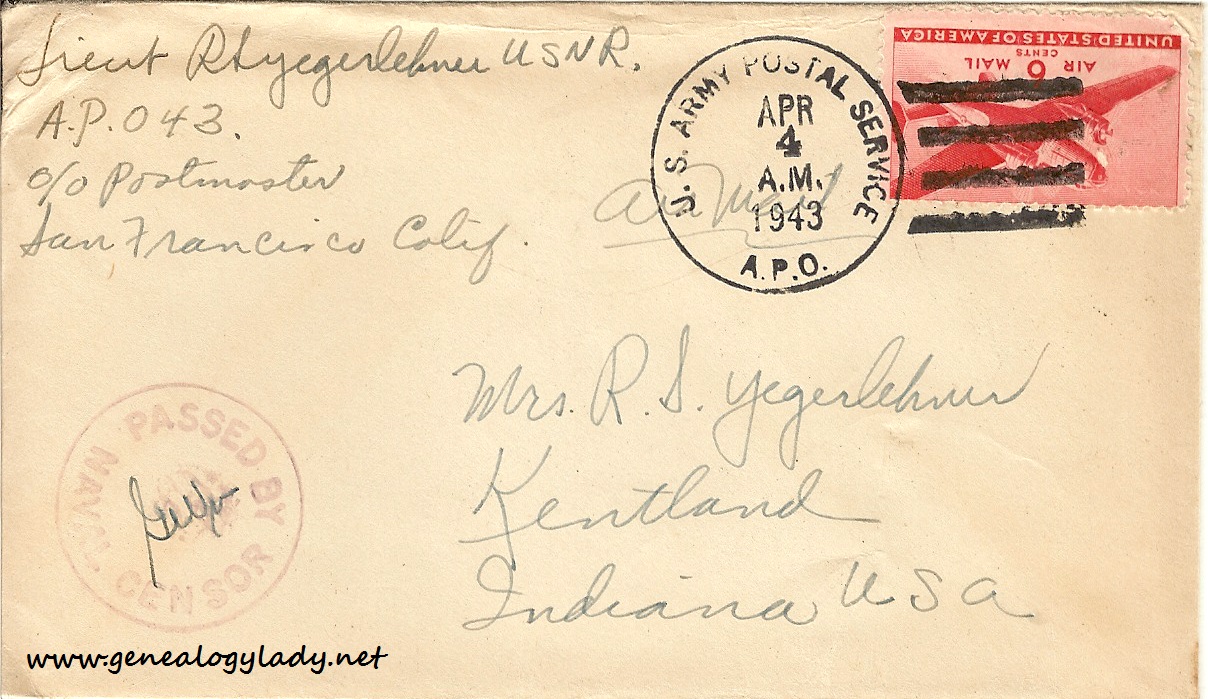 Lieut RHYegerlehner USNR.
A.P.O 43.
c/o Postmaster
San Francisco Calif.
Air Mail
U.S. ARMY POSTAL SERVICE
APR
4
A.M.
1943
A.P.O.
UNITED STATES OF AMERICA
AIR 6 MAIL
CENTS
Mrs. R. S. Yegerlehner
Kentland
Indiana USA
PASSED BY
NAVAL CENSOR
www.genealogylady.net